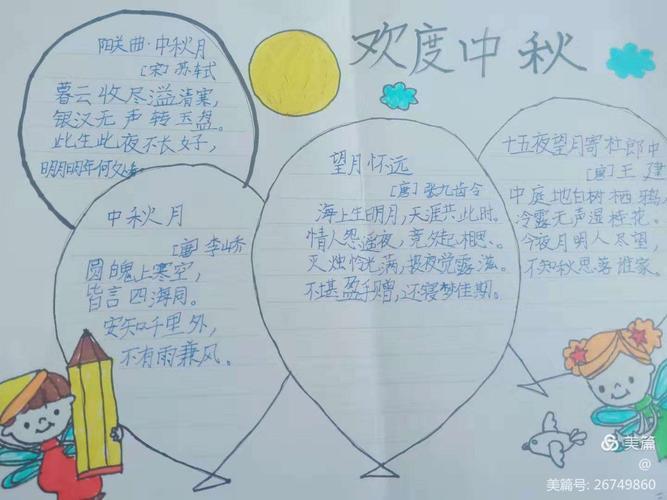 欢度中秋
阳关曲·中秋月
[宋]苏轼
暮云收尽溢清寒,
银汉无声转玉盘。
此生此夜不长好,
明月明年何处
中秋月
[唐]李峤
圆魄上寒空,
皆言四海同。
安知千里外,
不有雨兼风。
望月怀远
[唐]张九龄
海上生明月,天涯共此时。
情人怨遥夜,竟夕起相思。
灭烛怜光满,披衣觉露滋。
不堪盈手赠,还寝梦佳期。
十五夜望月寄杜郎中
[唐]王建
中庭地白树栖鸦,
冷露无声湿桂花。
今夜月明人尽望,
不知秋思落谁家。
美篇
@
美篇号: 26749860